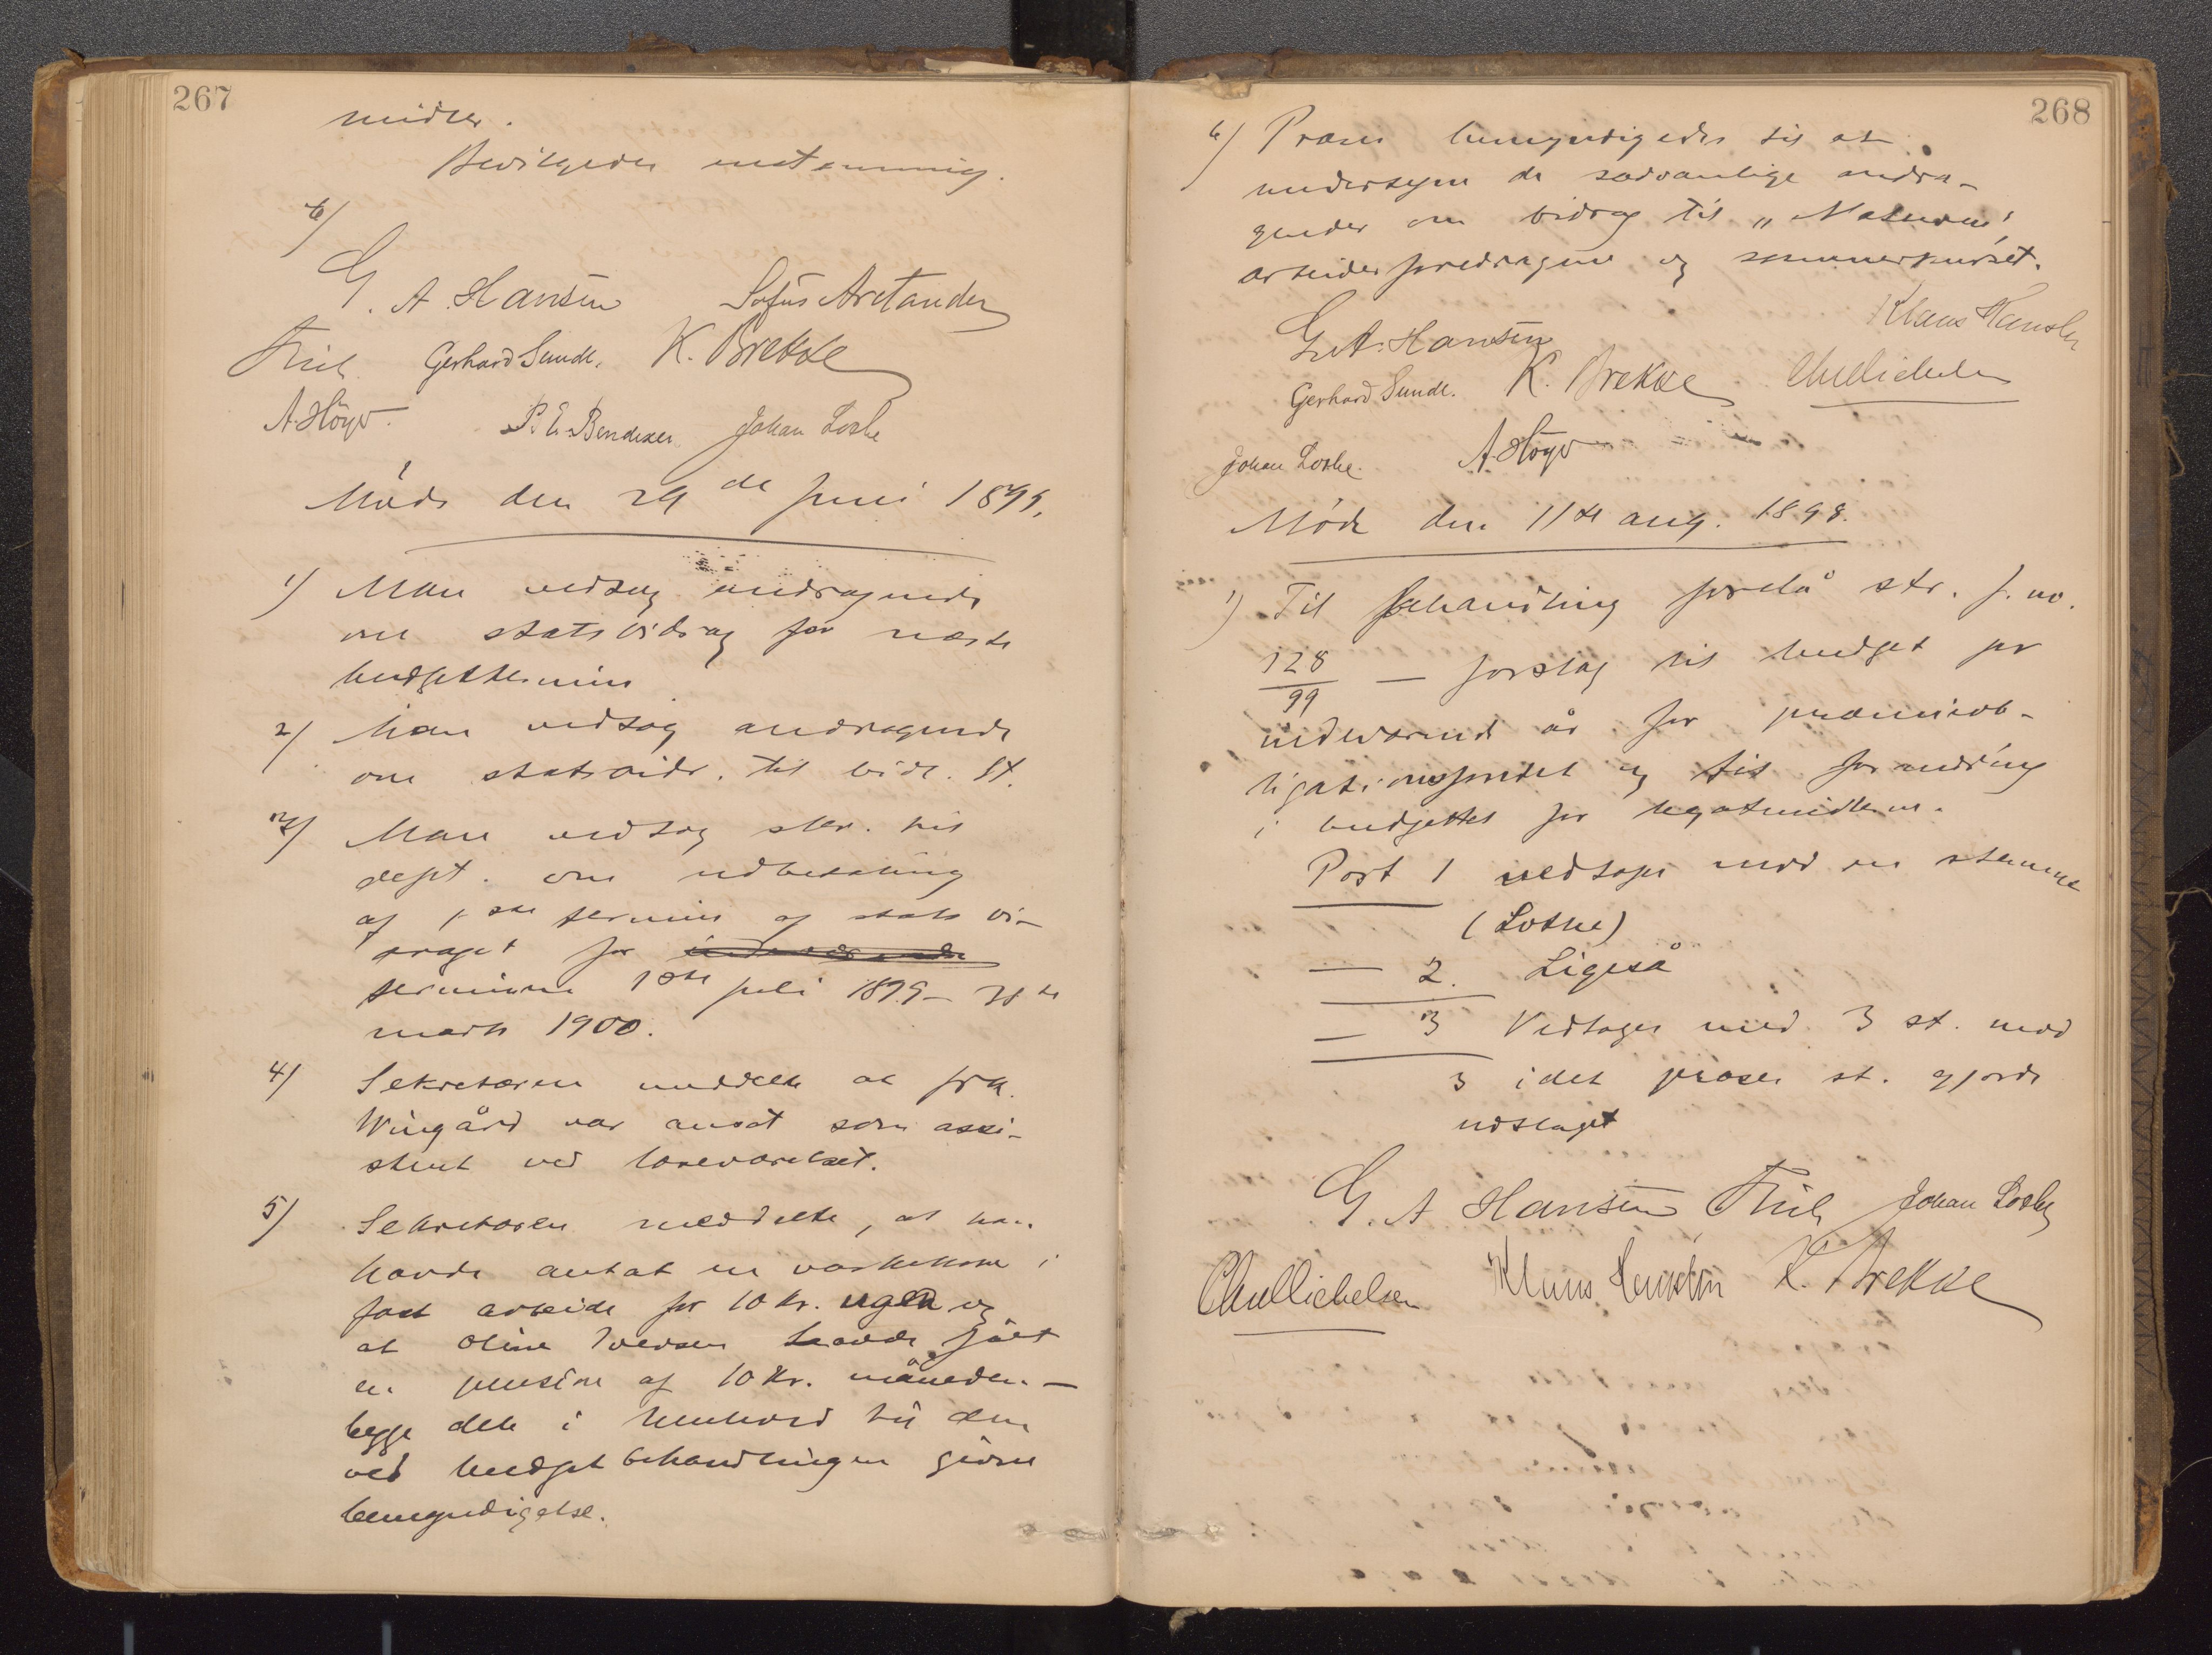 267
midler.
Bevilgedes enstemmig.
6/
G. A. Hansen Sofus Arctander
Friele Gerhard Sundt. K. Brekke
A. Höyer. B. E. Bendixen Johan Lothe
Møde den 29 de juni 1899.
1) Man vedtog andragende
om statsbidrag for næste
budgettermin
2) Man vedtog andragende
om statsbidr. til bibl. st.
3) Man vedtog skr. til
dept. om udbetaling
af 1ste termin af stats bi-
draget for indeværende
terminen 1ste juli 1899 – 31te
marts 1900.
4) Sekretæren meddelte at frk.
Wingård var ansat som assi-
stent ved læreværelset.
5) Sekretæren meddelte, at han
havde antat en vaskekone i
fast arbeide for 10 kr. ugen og
at Oline Iversen havde fåt
en pension af 10 kr. måneden –
begge dele i henhold til den
ved budgetbehandlingen givne
bemyndigelse.
268
6) Præses bemyndigedes til at
undertegne de sædvanlige andra-
gender om bidrag til „Naturen",
arbeiderforedragene og sommerkurset.
G. A. Hansen Klaus Hanssen
Gerhard Sundt. K. Brekke Chr Michelsen
Johan Lothe. A. Höyer
Møde den 11te aug. 1899.
1) Til behandling forelå skr. j. no.
128
99 — forslag til budget for
indeværende år for præmieob-
ligationsfondet og til forandring
i budgettet for legatmidlerne.
Post 1 vedtoges mod en stemme
(Lothe)
— 2. Ligeså
— 3 Vedtoges med 3 st. mod
3 idet præses st. gjorde
udslaget
G. A. Hansen Friele Johan Lothe
Chr Michelsen Klaus Hanssen K. Brekke